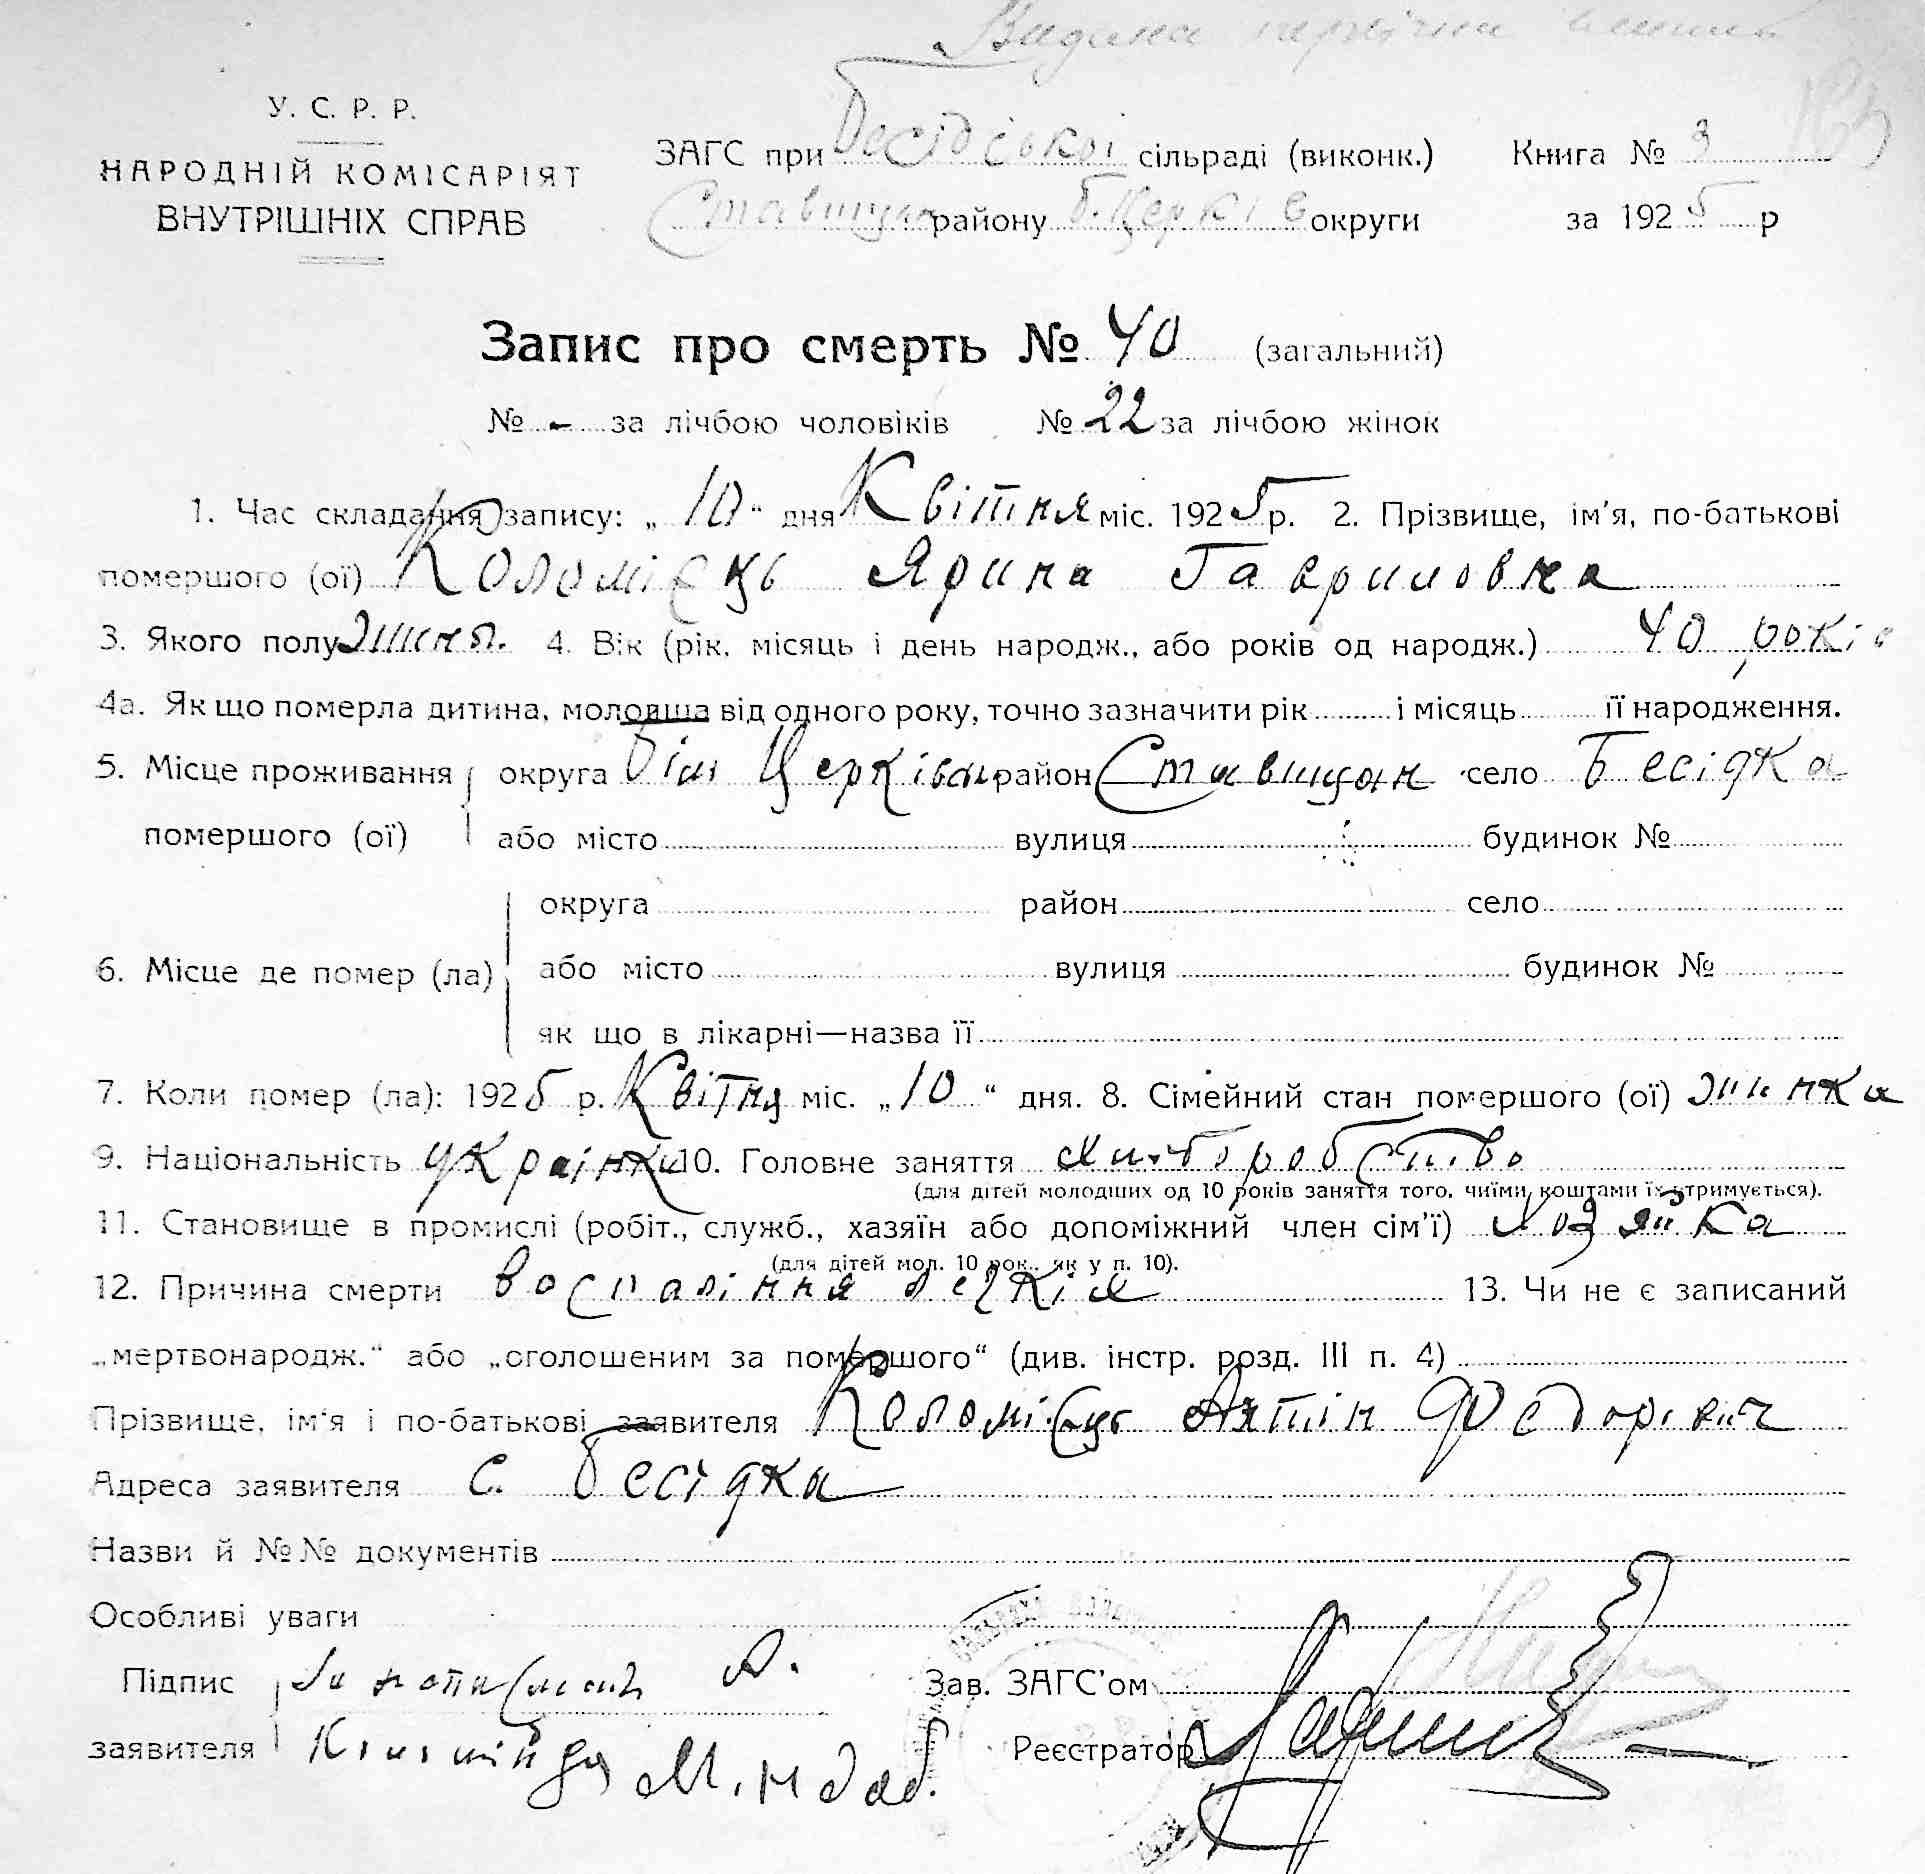 Видана
У. С. Р. Р.
НАРОДНІЙ КОМІСАРІЯТ
ВНУТРІШНІХ СПРАВ
ЗАГС при Бесідської сільраді (виконк.) Книга № 3
Ставищан району б. Церків округи за 1925 р
Запис про смерть № 40 (загальний)
№ - за лічбою чоловіків № 22 за лічбою жінок
1. Час складання запису: „ 10 “ дня Квітня міс. 1925 р. 2. Прізвище, ім'я, по-батькові
помершого (ої) Коломієць Ярина Гавриловна
3. Якого полу 4. Вік (рік, місяць і день народж., або років од народж.) 40 років
4а. Як що померла дитина, моловша від одного року, точно зазначити рік і місяць її народження.
5. Місце проживання округа Біл Церківськ район Ставищан село Бесідка
помершого (ої) або місто вулиця будинок №
округа район село
6. Місце де помер (ла) або місто вулиця будинок №
як що в лікарні—назва її
7. Коли помер (ла): 1925 р. Квітня міс. „ 10 “ дня. 8. Сімейний стан помершого (ої) жинка
9. Національність українка 10. Головне заняття хліборобство
(для дітей молодших од 10 років заняття того, чиїми коштами їх утримується).
11. Становище в промислі (робіт., служб., хазяїн або допоміжний член сім'ї) хозяйка
(для дітей мол. 10 рок., як у п. 10).
12. Причина смерти воспаління легкіх 13. Чи не є записаний
„мертвонародж.“ або „оголошеним за помершого“ (див. інстр. розд. III п. 4)
Прізвище, ім'я і по-батькові заявителя Коломієць Антін Федорович
Адреса заявителя с. Бесідка
Назви й №№ документів
Особливі уваги
Підпис А. Зав. ЗАГС'ом
заявителя Реєстратор